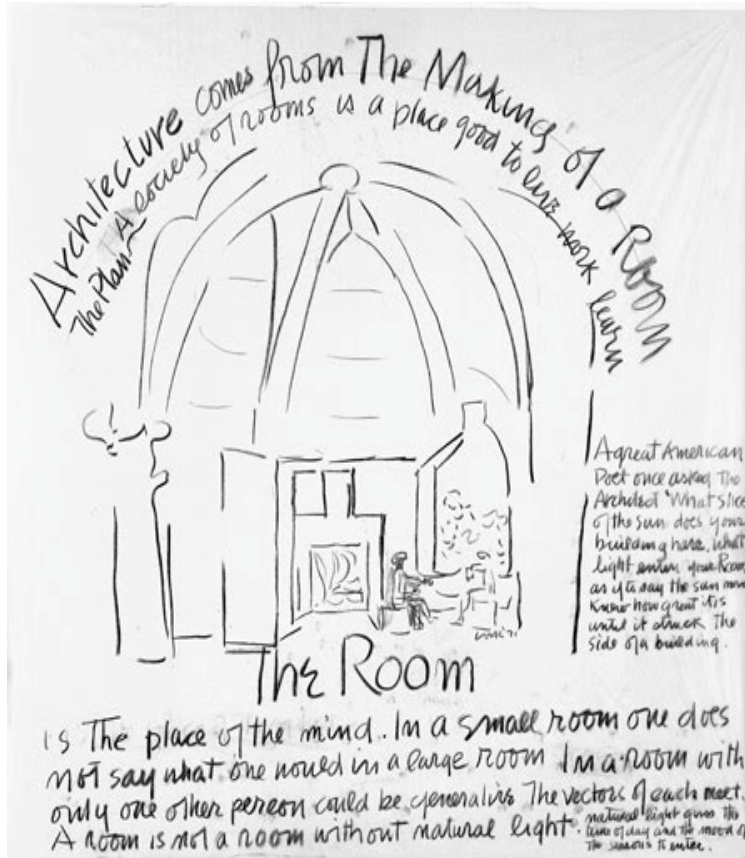 Architecture comes from The Making of a Room
The Plan - A society of rooms is a place good to live work learn
A great American
Poet once asked the
Architect 'What slice
of the sun does your
building have, what
light enters your Room
as if to say the sun never
knew how great it is
until it struck the
side of a building.
The Room
is The place of the mind. In a small room one does
not say what one would in a large room In a room with
only one other person could be generative The vectors of each meet.
A room is not a room without natural light. natural light gives the
time of day and the mood of
The seasons to enter.